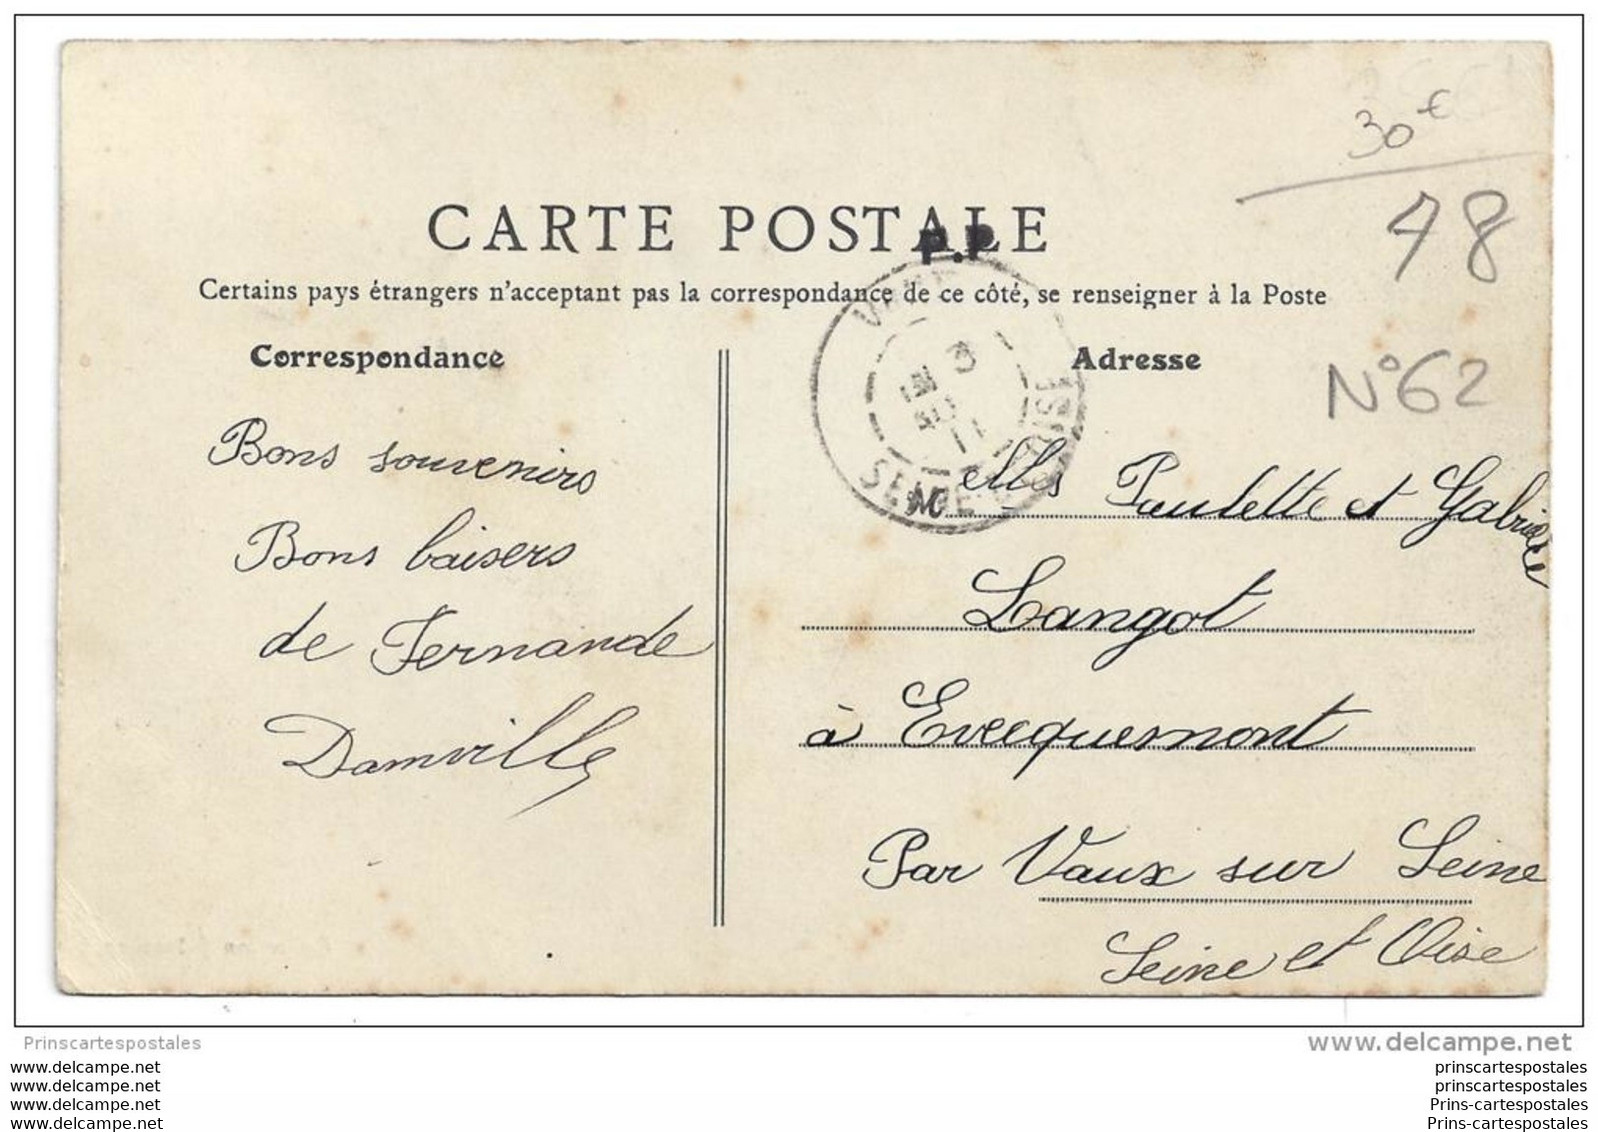 30€
78
CARTE POSTALE
P.P
Certains pays étrangers n'acceptant pas la correspondance de ce côté, se renseigner à la Poste
Correspondance
Adresse
N°62
Bons souvenirs
Bons baisers
de Fernande
Damville
3
11
SEINE OISE
Melles Paulette et Gabrielle
Langot
à Evecquemont
Par Vaux sur Seine
Seine et Oise
Prinscartespostales
www.delcampe.net
www.delcampe.net
www.delcampe.net
www.delcampe.net
www.delcampe.net
prinscartespostales
prinscartespostales
Prins-cartespostales
Prins-cartespostales